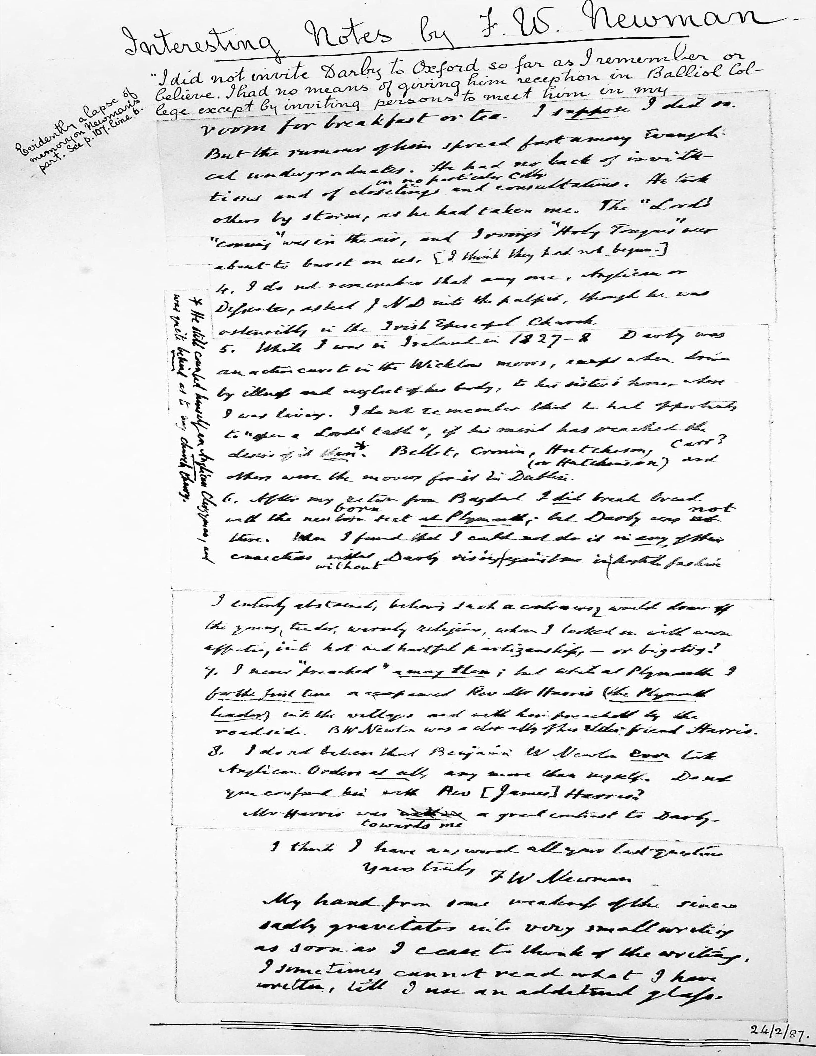 Interesting Notes by F. W. Newman
"I did not invite Darby to Oxford so far as I remember or
believe. I had no means of giving him reception in Balliol Col-
lege except by inviting persons to meet him in my
Evidently a lapse of
memory on Newman's
part. See p. 107. line 6.
room for breakfast or tea. I suppose I did so.
But the rumour of him spread fast among Evangeli-
cal undergraduates. He had no lack of invita-
in no particular Coll.
tions and of closetings and consultations. He took
others by storm, as he had taken me. The "Lord's
"coming" was in the air, and Irving's "Holy Tongues" were
about to burst on us. [I think they had not begun.]
4. I do not remember that any one, Anglican or
Dissenter, asked J N D into the pulpit, though he was
ostensibly in the Irish Episcopal Church.
5. While I was in Ireland in 1827-8 Darby was
an active curate in the Wicklow moors, except when driven
by illness and neglect of his body, to his sister's house, where
I was living. I do not remember that he had opportunity
to "open a Lord's table", if his mind has reached the
desire of it then*. Bellet, Cronin, Hutcheson, Carr?
(or Hutchinson) and
others were the movers for it in Dublin.
* He still counted himself an Anglican Clergyman, and
was quite behind as to any church theory.
6. After my return from Bagdad I did break bread
born not
with the new born sect at Plymouth; but Darby was not
there. When I found that I could not do it in any of their
connection without Darby against me in hostile fashion
without
I entirely abstained, believing such a controversy would draw off
the young, tender, warmly religious, whom I looked on with warm
affection, into hot and hurtful partizanship, — or bigotry!
7. I never "preached" among them; but while at Plymouth I
for the first time accompanied Rev Mr Harris (the Plymouth
leader) into the villages and with him preached by the
roadside. B W Newton was a close ally of his Elder friend Harris.
8. I do not believe that Benjamin W Newton ever took
Anglican Orders at all, any more than myself. Do not
you confound him with Rev [James] Harris?
Mr Harris was a great contrast to Darby.
towards me
I think I have answered all your last questions
Yours truly F W Newman
My hand from some weakness of the sinews
sadly gravitates into very small writing
as soon as I cease to think of the writing.
I sometimes cannot read what I have
written, till I use an additional glass.
24/2/87.